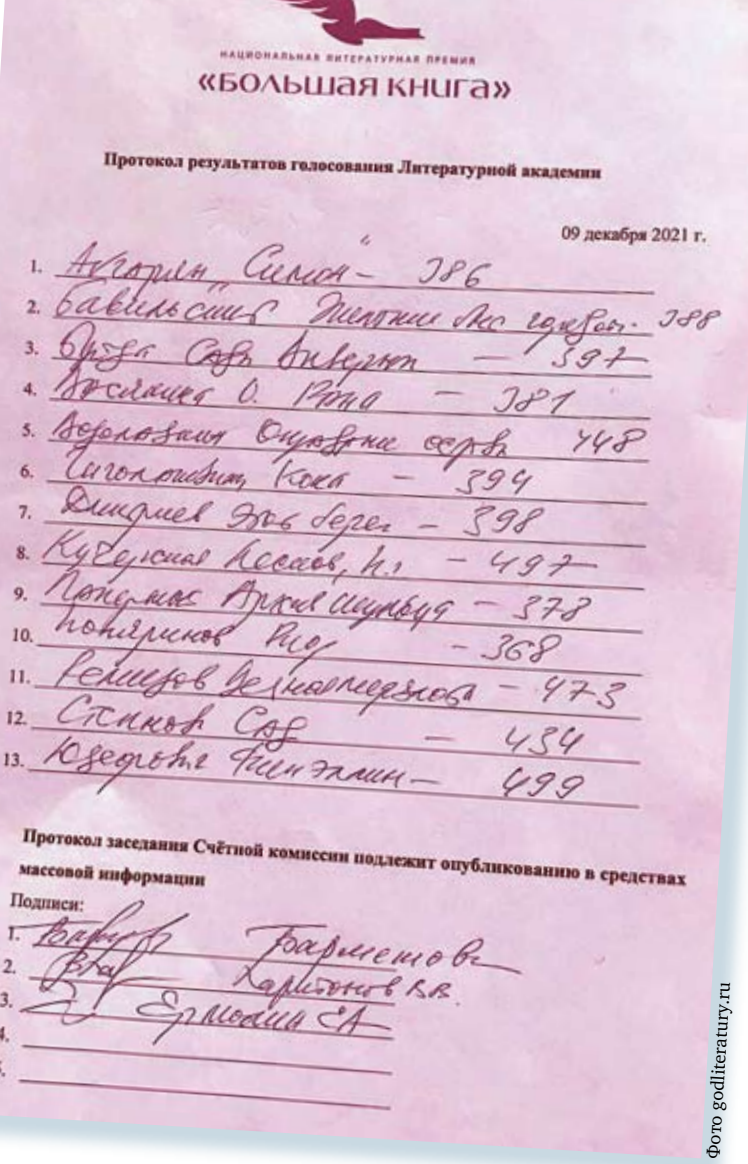 НАЦИОНАЛЬНАЯ ЛИТЕРАТУРНАЯ ПРЕМИЯ
«БОЛЬШАЯ КНИГА»
Протокол результатов голосования Литературной академии
09 декабря 2021 г.
1. Авченко Симон – 386
2. Бавильский Желание быть городом – 388
3. Букша Адвент – 397
4. Васякина О. Рана – 381
5. Водолазкин Оправдание острова 448
6. Гиголашвили Кока – 394
7. Дмитриев Этот берег – 398
8. Кучерская Лесков, – 497
9. – 378
10. Поляринов Риф – 368
11. Ремизов Вечная мерзлота – 473
12. Степнова Сад – 434
13. Юзефович Филэллин – 499
Протокол заседания Счётной комиссии подлежит опубликованию в средствах
массовой информации
Подписи:
1. Барметова
2. Харитонов В.В.
3. Ермолин ЕА
4.
Фото godliteratury.ru